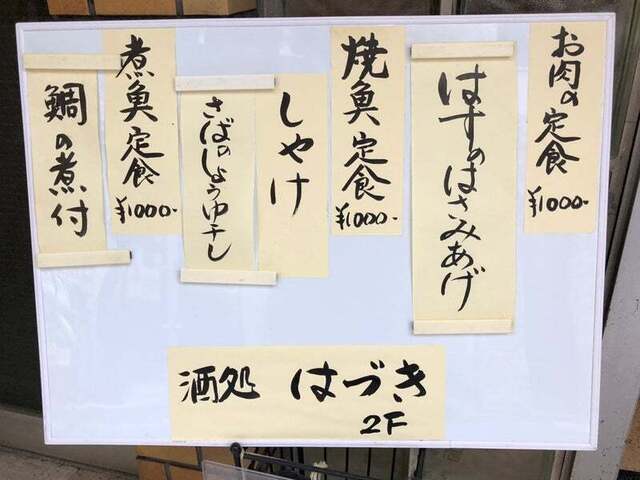 お肉の定食
¥1000-
はすのはさみあげ
焼魚定食
¥1000-
しゃけ
さばのしょうゆ干し
煮魚定食
¥1000-
鯛の煮付
酒処 はづき
2F